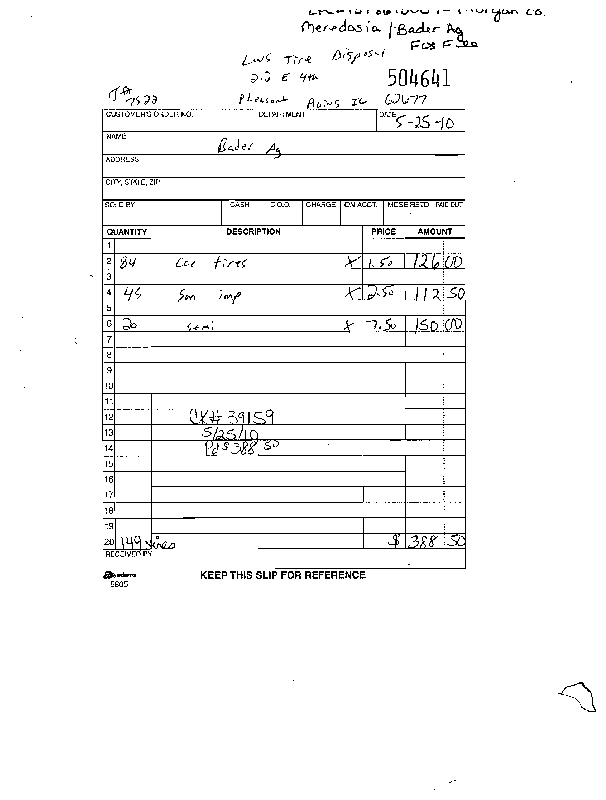 Morgan Co.
Meredosia / Bader Ag
FOS File
LWS Tire Disposal
E 4th
504641
7522
Pleasant Plains IL 62677
CUSTOMER'S ORDER NO. DEPARTMENT DATE 5-25-10
NAME Bader Ag
ADDRESS
CITY, STATE, ZIP
SOLD BY CASH C.O.D. CHARGE ON ACCT. MDSE RETD PAID OUT
QUANTITY DESCRIPTION PRICE AMOUNT
1
2 84 Car tires X 1.50 126 00
3
4 45 Sm imp X 2.50 112 50
5
6 20 semi X 7.50 150 00
7
8
9
10
11
12 CK# 39159
13 5/25/10
14 Pd $ 388 50
15
16
17
18
19
20 149 tires $ 388 50
RECEIVED BY
adams KEEP THIS SLIP FOR REFERENCE
5805